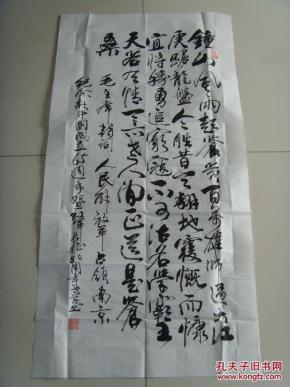 钟山风雨起苍黄百万雄师过大江
虎踞龙盘今胜昔天翻地覆慨而慷
宜将剩勇追穷寇不可沽名学霸王
天若有情天亦老人间正道是沧
桑 毛主席诗词 人民解放军占领南京
纪念新中国成立六十五周年暨
孔夫子旧书网